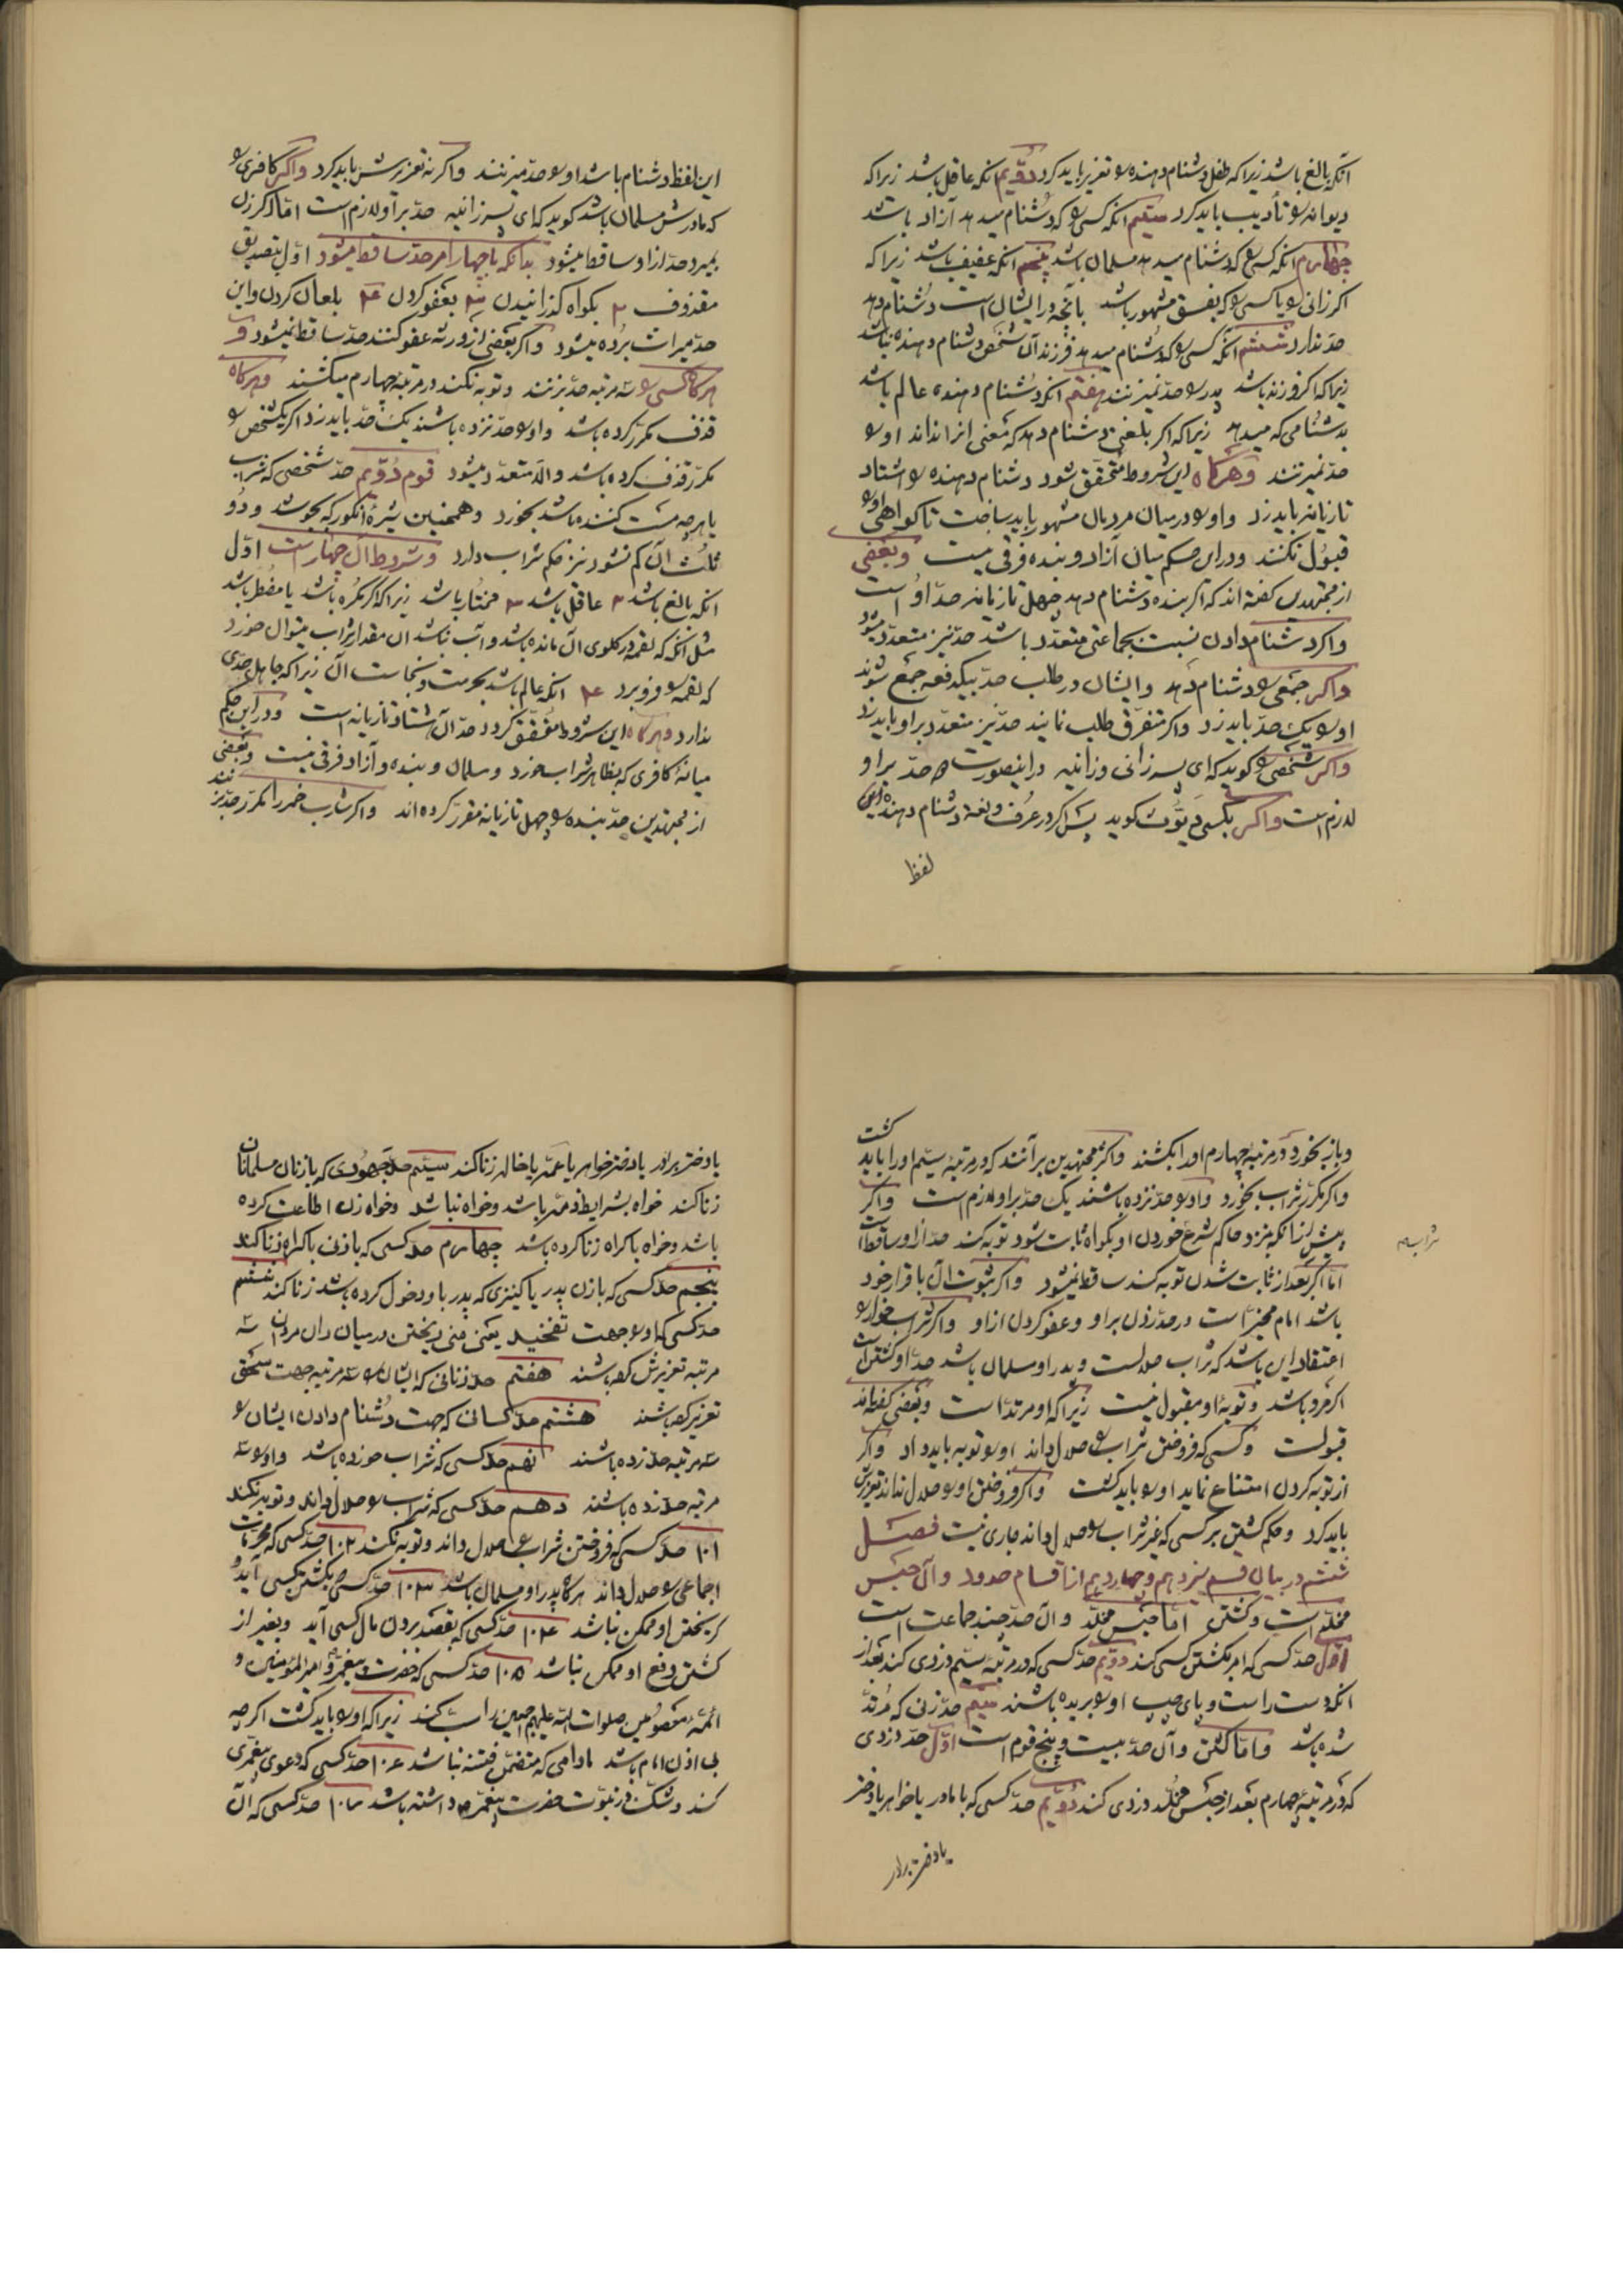 آنکه بالغ باشد زیرا که طفل دشنام دهنده را تعزیر باید کرد دویّم آنکه عاقل باشد زیرا که
دیوانه را تأدیب باید کرد سیّم آنکه کسی را که دشنام میدهد آزاد باشد
چهارم آنکه کسی را که دشنام میدهد مسلمان باشد پنجم آنکه عفیف باشد زیرا که
اگر زانی را یا کسی را که بفسق مشهور باشد بآنچه در ایشان است دشنام دهد
حدّ ندارد ششم آنکه کسی را که دشنام میدهد فرزند آن شخص دشنام دهنده نباشد
زیرا که اگر فرزند باشد پدر را حدّ نمیزنند هفتم آنکه دشنام دهنده عالم باشد
بدشنامی که میدهد زیرا که اگر بلغتی دشنام دهد که معنی آنرا نداند او را
حدّ نمیزنند وهرگاه این شروط متحقّق شود دشنام دهنده را هشتاد
تازیانه باید زد و او را در میان مردمان مشهور باید ساخت تا گواهی او را
قبول نکنند و در این حکم میان آزاد و بنده فرقی نیست وبعضی
از مجتهدین گفته‌اند که اگر بنده دشنام دهد چهل تازیانه حدّ او است
واگر دشنام دادن نسبت بجماعتی متعدّد باشد حدّ نیز متعدّد میشود
واگر جمعی را دشنام دهد و ایشان در طلب حدّ بیکدفعه جمع شوند
او را یک حدّ باید زد واگر متفرّق طلب نمایند حدّ نیز متعدّد بر او باید زد
واگر شخصی را گوید که ای پسر زانی و زانیه در اینصورت دو حدّ بر او
لازم است واگر بکسی دیّوث گوید پس اگر در عرف و لغة دشنام دهنده این
لفظ
این لفظ دشنام باشد او را حدّ میزنند واگرنه تعزیرش باید کرد واگر کافری را
که مادرش مسلمان باشد گوید که ای پسر زانیه حدّ بر او لازم است امّا اگر زن
بمیرد حدّ از او ساقط میشود بدانکه بچهار امر حدّ ساقط میشود اوّل بتصدیق
مقذوف ۲ بگواه گذرانیدن ۳ بعفو کردن ۴ بلعان کردن و این
حدّ میراث برده میشود واگر بعضی از ورثه عفو کنند حدّ ساقط نمیشود و
هرگاه کسی را سه مرتبه حدّ بزنند و توبه نکند در مرتبه چهارم میکشند وهرگاه
قذف مکرّر کرده باشد و او را حدّ نزده باشند یک حدّ باید زد اگر یکشخص را
مکرّر قذف کرده باشد والّا متعدّد میشود قوم دویّم حدّ شخصی که شراب
یا هرچه مست کننده باشد بخورد وهمچنین شیرهٔ انگور که بجوشد و دو
ثلث آن کم نشود نیز حکم شراب دارد وشروط آن چهار است اوّل
آنکه بالغ باشد ۲ عاقل باشد ۳ مختار باشد زیرا که اگر مکره باشد یا مضطر باشد
مثل آنکه که لقمه در گلوی آن مانده باشد و آب نباشد آن مقدار شراب میتوان خورد
که لقمه را فرو برد ۴ آنکه عالم باشد بحرمت و نجاست آن زیرا که جاهل حدّی
ندارد وهرگاه این شروط متحقّق گردد حدّ آن هشتاد تازیانه است و در این حکم
میانهٔ کافری که بظاهر شراب خورد و مسلمان و بنده و آزاد فرقی نیست وبعضی
از مجتهدین حدّ بنده را چهل تازیانه مقرّر کرده‌اند واگر شارب خمر را مکرّر حدّ بزنند
و باز بخورد در مرتبهٔ چهارم او را بکشند واکثر مجتهدین برآنند که در مرتبهٔ سیّم او را باید کشت
واگر مکرّر شراب بخورد و او را حدّ نزده باشند یک حدّ بر او لازم است واگر
پیش از آنکه نزد حاکم شرع خوردن او بگواه ثابت شود توبه کند حدّ از او ساقط است
امّا اگر بعد از ثابت شدن توبه کند ساقط نمیشود واگر ثبوت آن باقرار خود
باشد امام مخیّر است در حدّ زدن بر او و عفو کردن از او واگر شراب‌خوار را
شراب
اعتقاد این باشد که شراب حلالست و پدر او مسلمان باشد حدّ او کشتن است
اگر مرد باشد و توبهٔ او مقبول نیست زیرا که او مرتد است وبعضی گفته‌اند
قبولست وکسی که فروختن شراب را حلال داند او را توبه باید داد واگر
از توبه کردن امتناع نماید او را باید کشت واگر فروختن او را حلال نداند تعزیرش
باید کرد وحکم کشتن بر کسی که غیر شراب را حلال داند جاری نیست فصل
ششم در بیان قسم سیزدهم وچهاردهم از اقسام حدود وآن حبس
مخلّد است وکشتن امّا حبس مخلّد وآن حدّ چند جماعت است
اوّل حدّ کسی که امر بکشتن کسی کند دویّم حدّ کسی که در مرتبهٔ سیّم دزدی کند بعد از
آنکه دست راست و پای چپ او را بریده باشند سیّم حدّ زن که مرتدّ
شده باشد وامّا کشتن وآن حدّ بیست وپنج قوم است اوّل حدّ دزدی
که در مرتبهٔ چهارم بعد از حبس مخلّد دزدی کند دویّم حدّ کسی که با مادر یا خواهر یا دختر
یا دختر برادر
یا دختر برادر یا دختر خواهر یا عمّه یا خاله زنا کند سیّم حدّ جهودی که با زنان مسلمانان
زنا کند خواه بشرایط ذمّه باشد وخواه نباشد وخواه زن اطاعت کرده
باشد وخواه باکراه زنا کرده باشد چهارم حدّ کسی که با زن باکراه زنا کند
پنجم حدّ کسی که با زن پدر یا کنیزی که پدر با او دخول کرده باشد زنا کند ششم
حدّ کسی که او را جهت تفخیذ یعنی منی ریختن در میان ران مردان سه
مرتبه تعزیرش کرده باشند هفتم حدّ زنانی که ایشان را سه مرتبه جهت سحق
تعزیر کرده باشند هشتم حدّ کسانی که جهت دشنام دادن ایشان را
سه مرتبه حدّ زده باشند نهم حدّ کسی که شراب خورده باشد و او را سه
مرتبه حدّ زده باشند دهم حدّ کسی که شراب را حلال داند و توبه نکند
۱۰۱ حدّ کسی که فروختن شراب را حلال داند و توبه نکند ۱۰۲ حدّ کسی که محرّمات
اجماعی را حلال داند هرگاه پدر او مسلمان باشد ۱۰۳ حدّ کسی که بکشتن کسی آید و
گریختن او ممکن نباشد ۱۰۴ حدّ کسی که بقصد بردن مال کسی آید و بغیر از
کشتن دفع او ممکن نباشد ۱۰۵ حدّ کسی که حضرت پیغمبر و امیرالمؤمنین و
ائمّهٔ معصومین صلوات اللّه علیهم اجمعین را سبّ کند زیرا که او را باید کشت اگرچه
بی اذن امام باشد مادامی که متضمّن فتنه نباشد ۱۰۶ حدّ کسی که دعوی پیغمبری
کند وشکّ در نبوّت حضرت پیغمبر ص داشته باشد ۱۰۷ حدّ کسی که آن